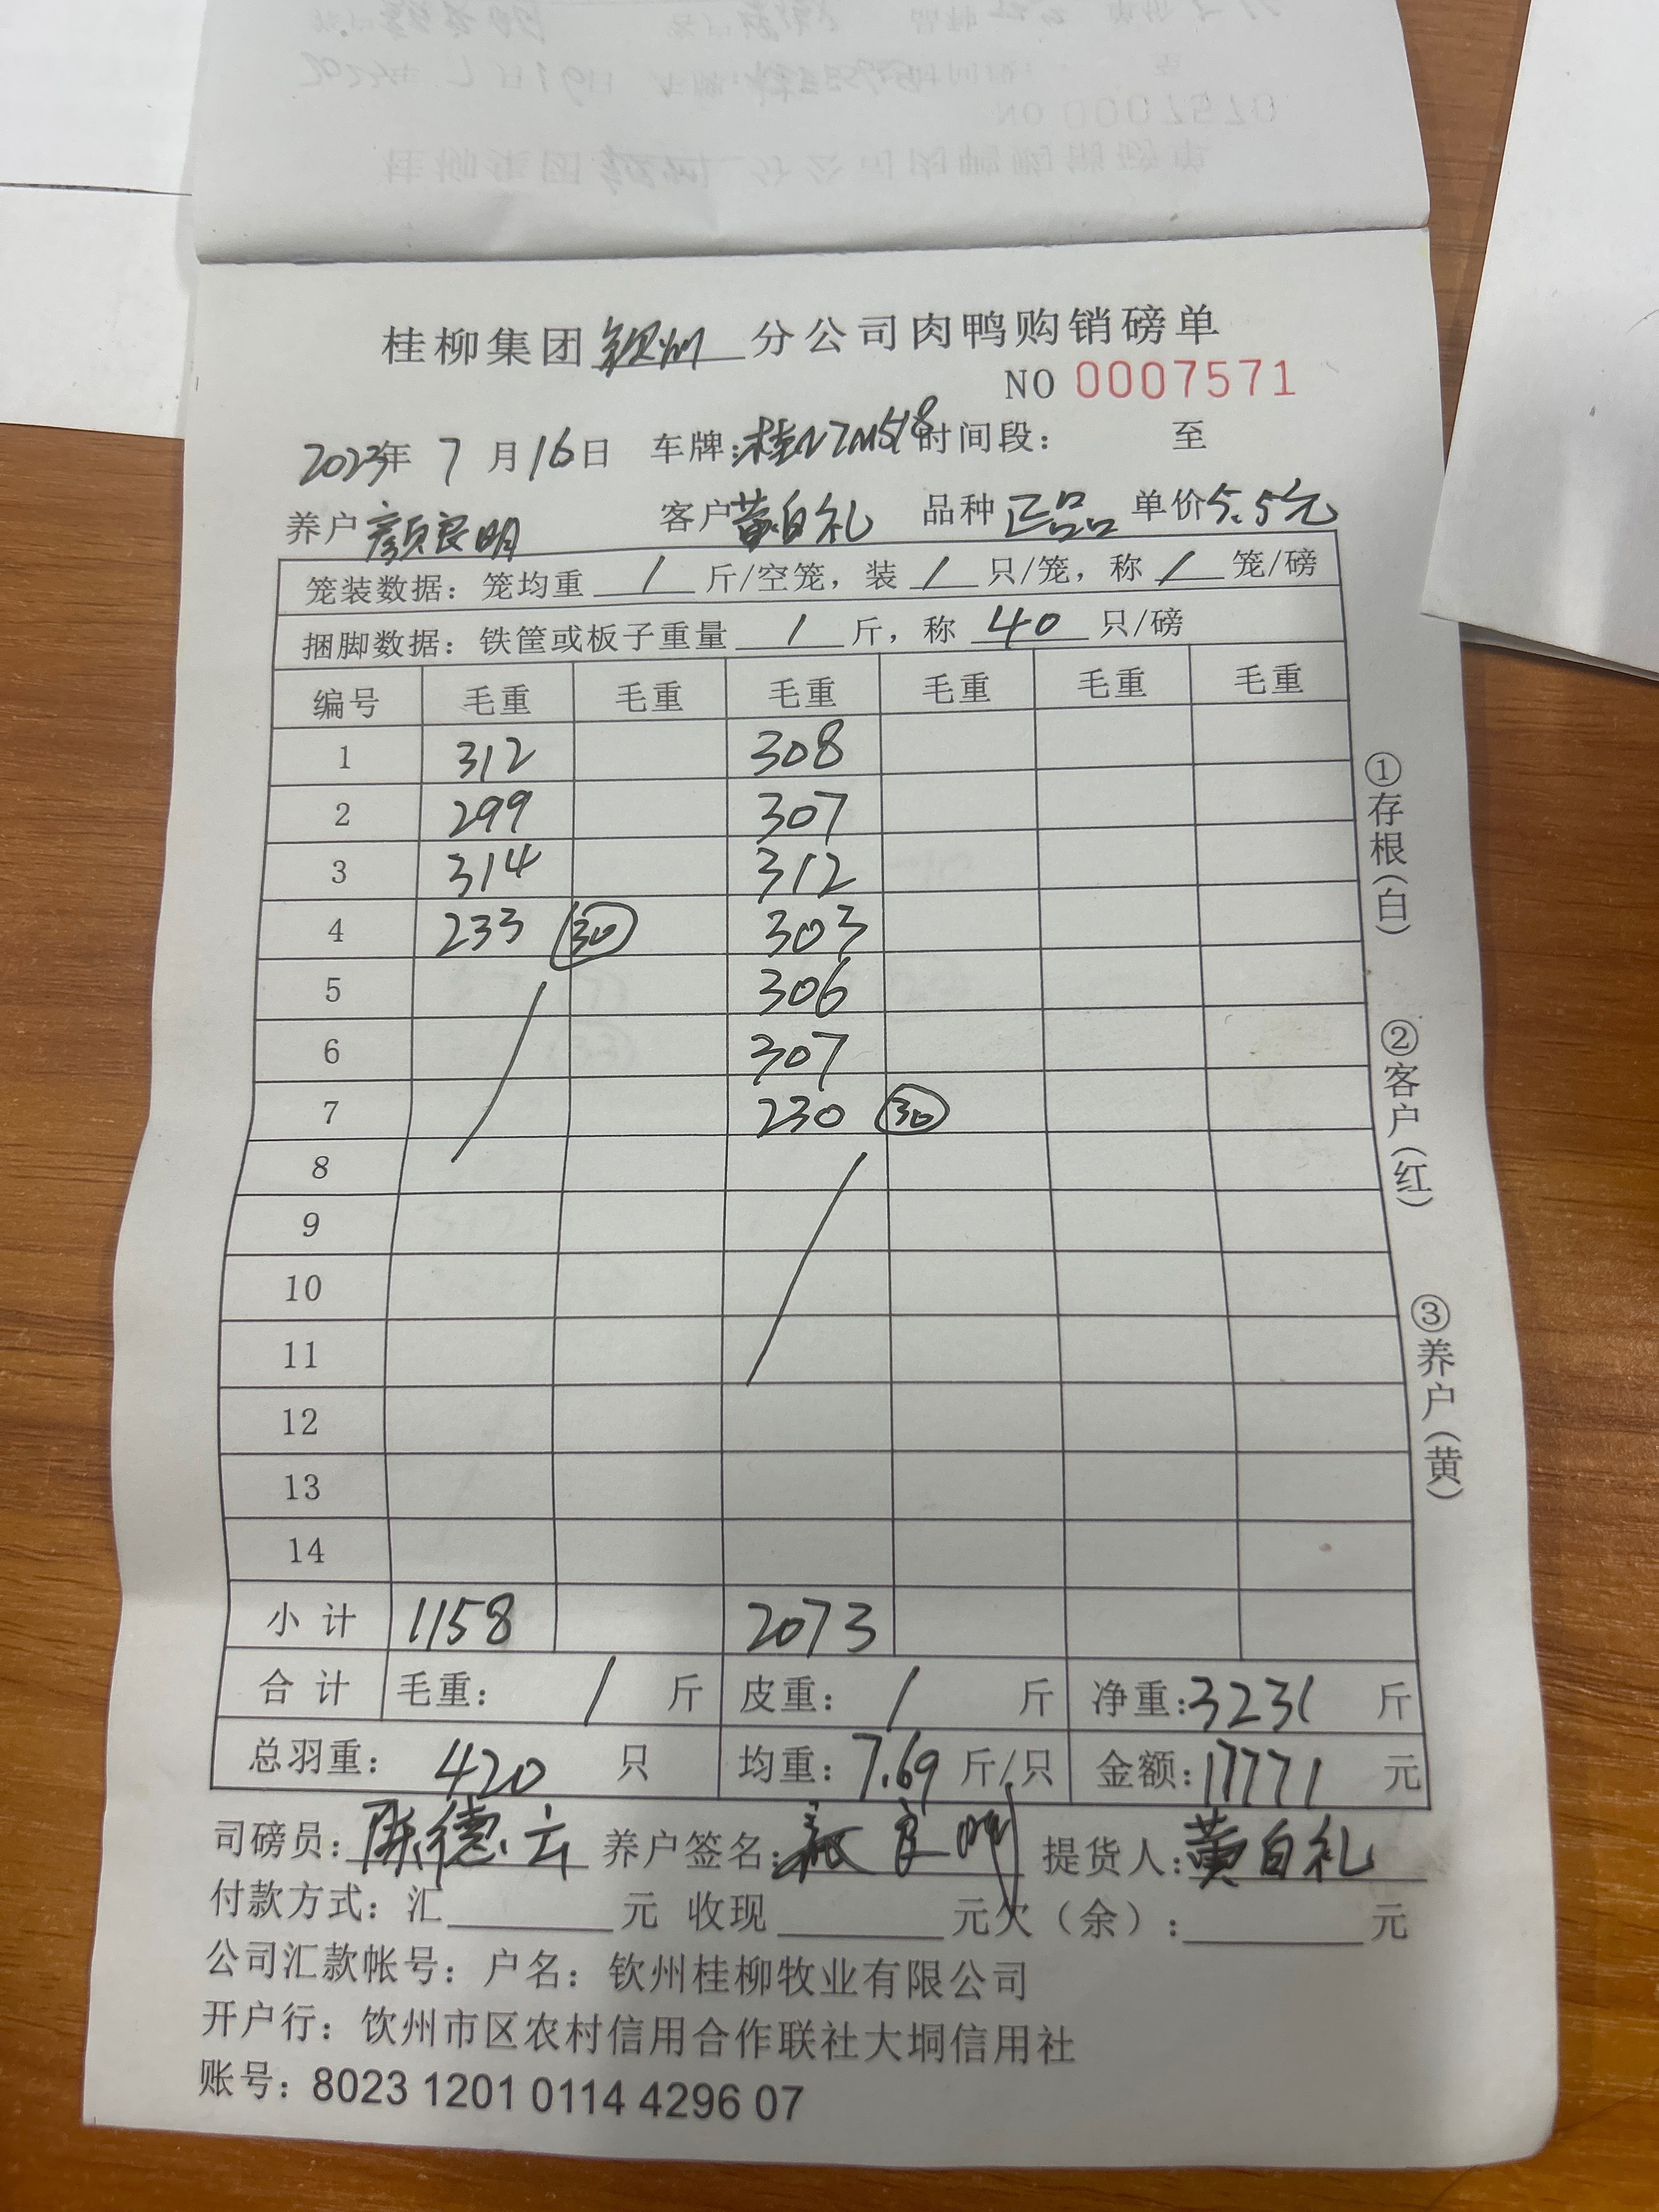 桂柳集团钦州分公司肉鸭购销磅单
NO 0007571
2023年 7 月16日 车牌:桂N7M518 时间段: 至
养户 颜良明 客户 黄自礼 品种 正品 单价 5.5元
笼装数据: 笼均重 / 斤/空笼, 装 / 只/笼, 称 / 笼/磅
捆脚数据: 铁筐或板子重量 / 斤, 称 40 只/磅
编号 毛重 毛重 毛重 毛重 毛重 毛重
1 312 308
2 299 307
3 314 312
4 233 30 303
5 306
6 307
7 230 30
8
9
10
11
12
13
14
小 计 1158 2073
合 计 毛重: / 斤 皮重: / 斤 净重:3231 斤
总羽重: 420 只 均重: 7.69 斤/只 金额:17771 元
司磅员: 陈德云 养户签名: 颜良明 提货人: 黄自礼
付款方式: 汇 元 收现 元欠(余): 元
公司汇款帐号: 户名: 钦州桂柳牧业有限公司
开户行: 钦州市区农村信用合作联社大垌信用社
账号: 8023 1201 0114 4296 07
①存根(白)
②客户(红)
③养户(黄)